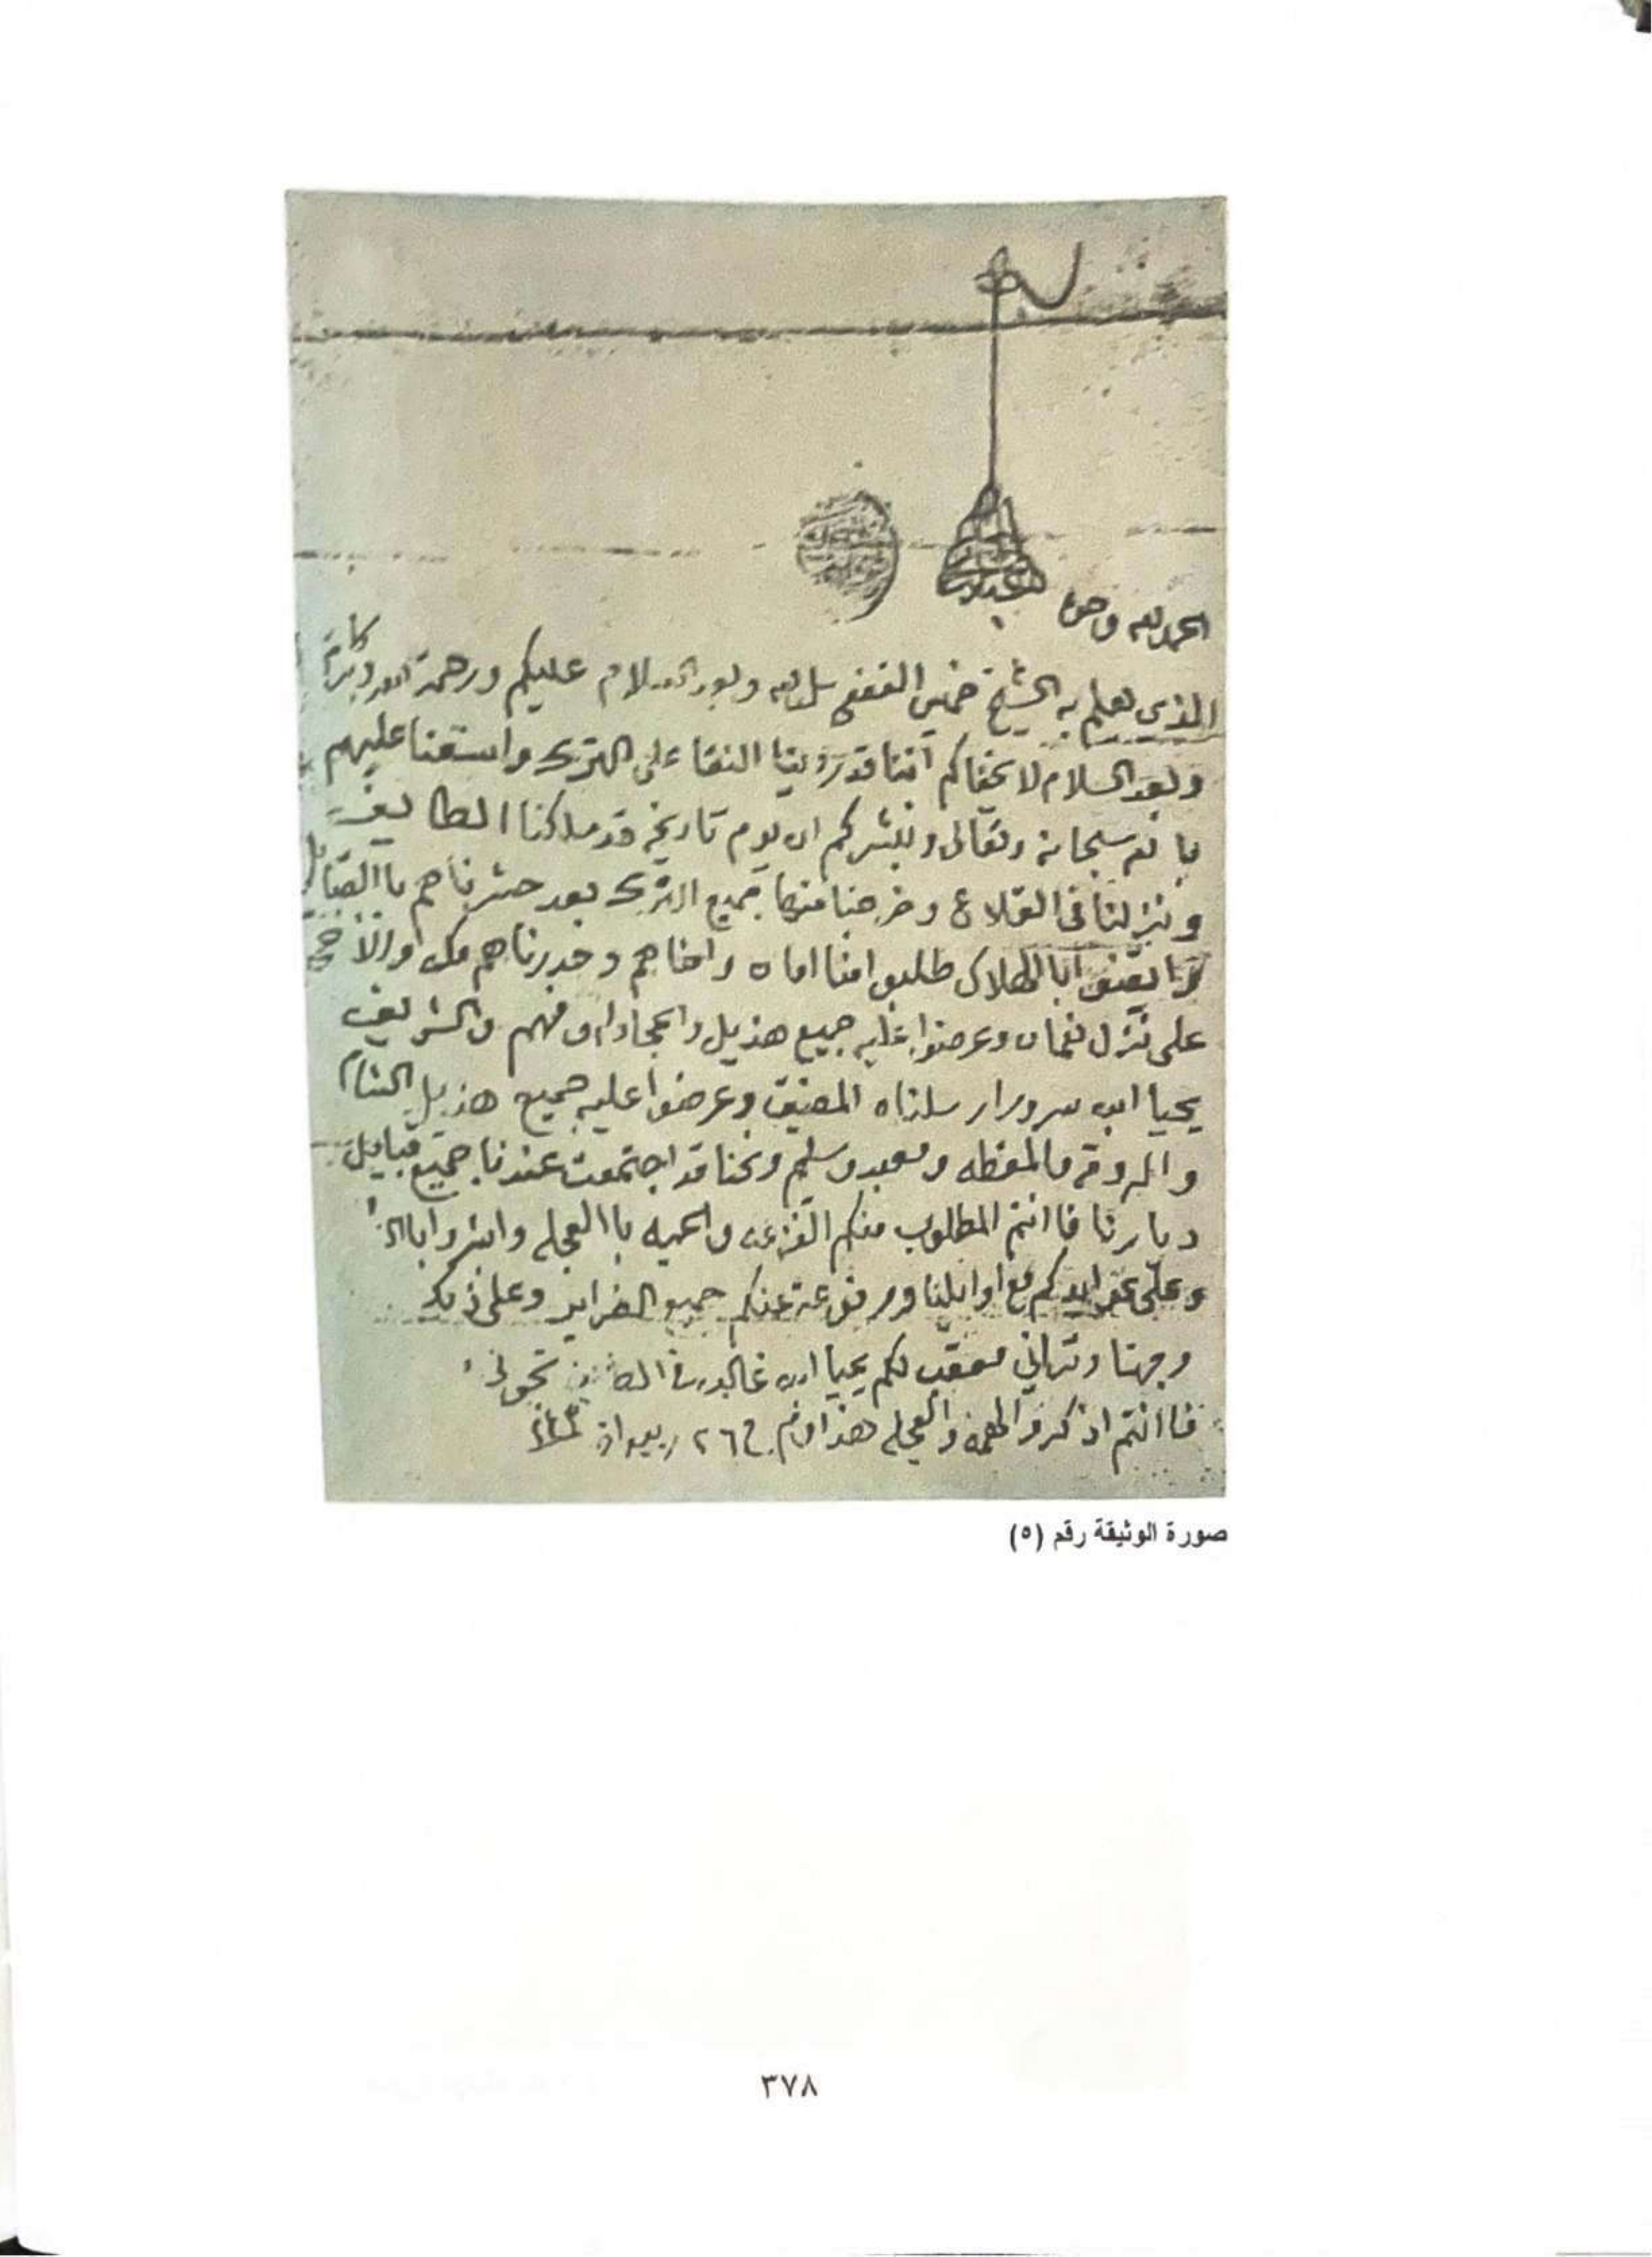 الحمد لله وحده
الذي يعلم به الشيخ خميس القفعي سلمه الله وبعد السلام عليكم ورحمة الله وبركاته
وبعد السلام لا يخفاكم اننا قد روينا النقا على الترك واستعنا عليهم
بالله سبحانه وتعالى ونبشركم ان يوم تاريخه قد ملكنا الطايف
ونزلنا في القلاع وخرجنا منها جميع الترك بعد حشرناهم باالقبايل
طلبو امنا امان وامناهم وحدرناهم
على نزل نعمان وعرضوا عليه جميع هذيل والجحادله وفهم والشريف
يحيا ابن سرور ارسلناه المضيق وعرضوا عليه جميع هذيل الشام
والروقه والمقطه ومعبد وسليم ونحنا قد اجتمعت عندنا جميع قبايل
ديارنا فاانتم المطلوب منكم الفزعه والحميه باالعجله وابشروا
وعلى عوايدكم مع اوايلنا ومرفوعة عنكم جميع وعلى ذلك
وجهنا وتراني معقب لكم يحيا ابن غالب
فاانتم اذكروا الهمه والعجله هذا ودمتم في ٢٦ ربيع
صورة الوثيقة رقم (٥)
٣٧٨